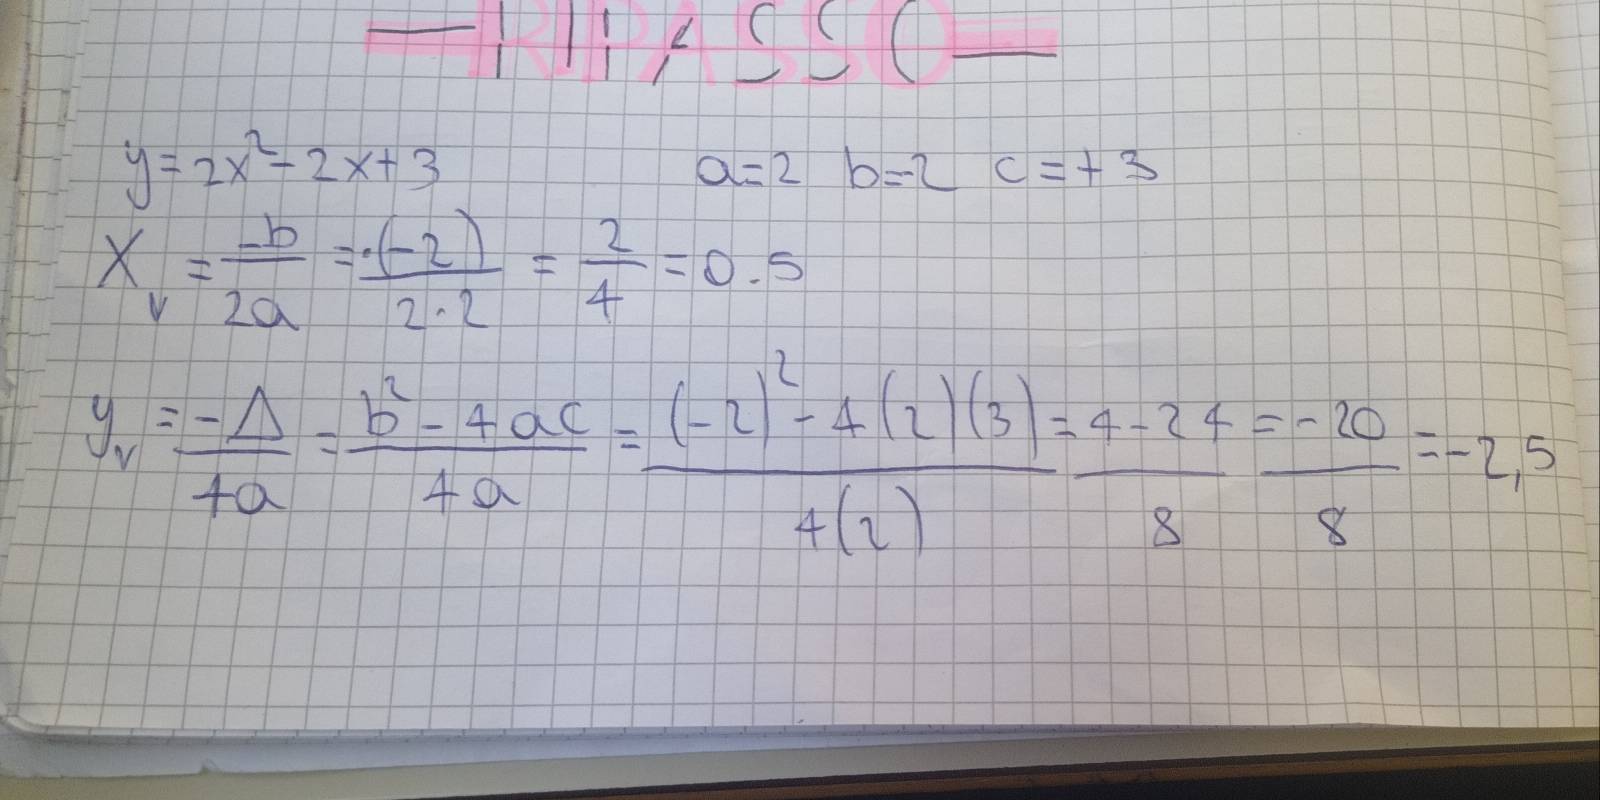 RIPASSO
y=2x²-2x+3 a=2 b=-2 c=+3
Xᵥ = -b/2a = -(-2)/2·2 = 2/4 = 0.5
yᵥ = -Δ/4a = b²-4ac/4a = (-2)²-4(2)(3)/4(2) = 4-24/8 = -20/8 = -2,5